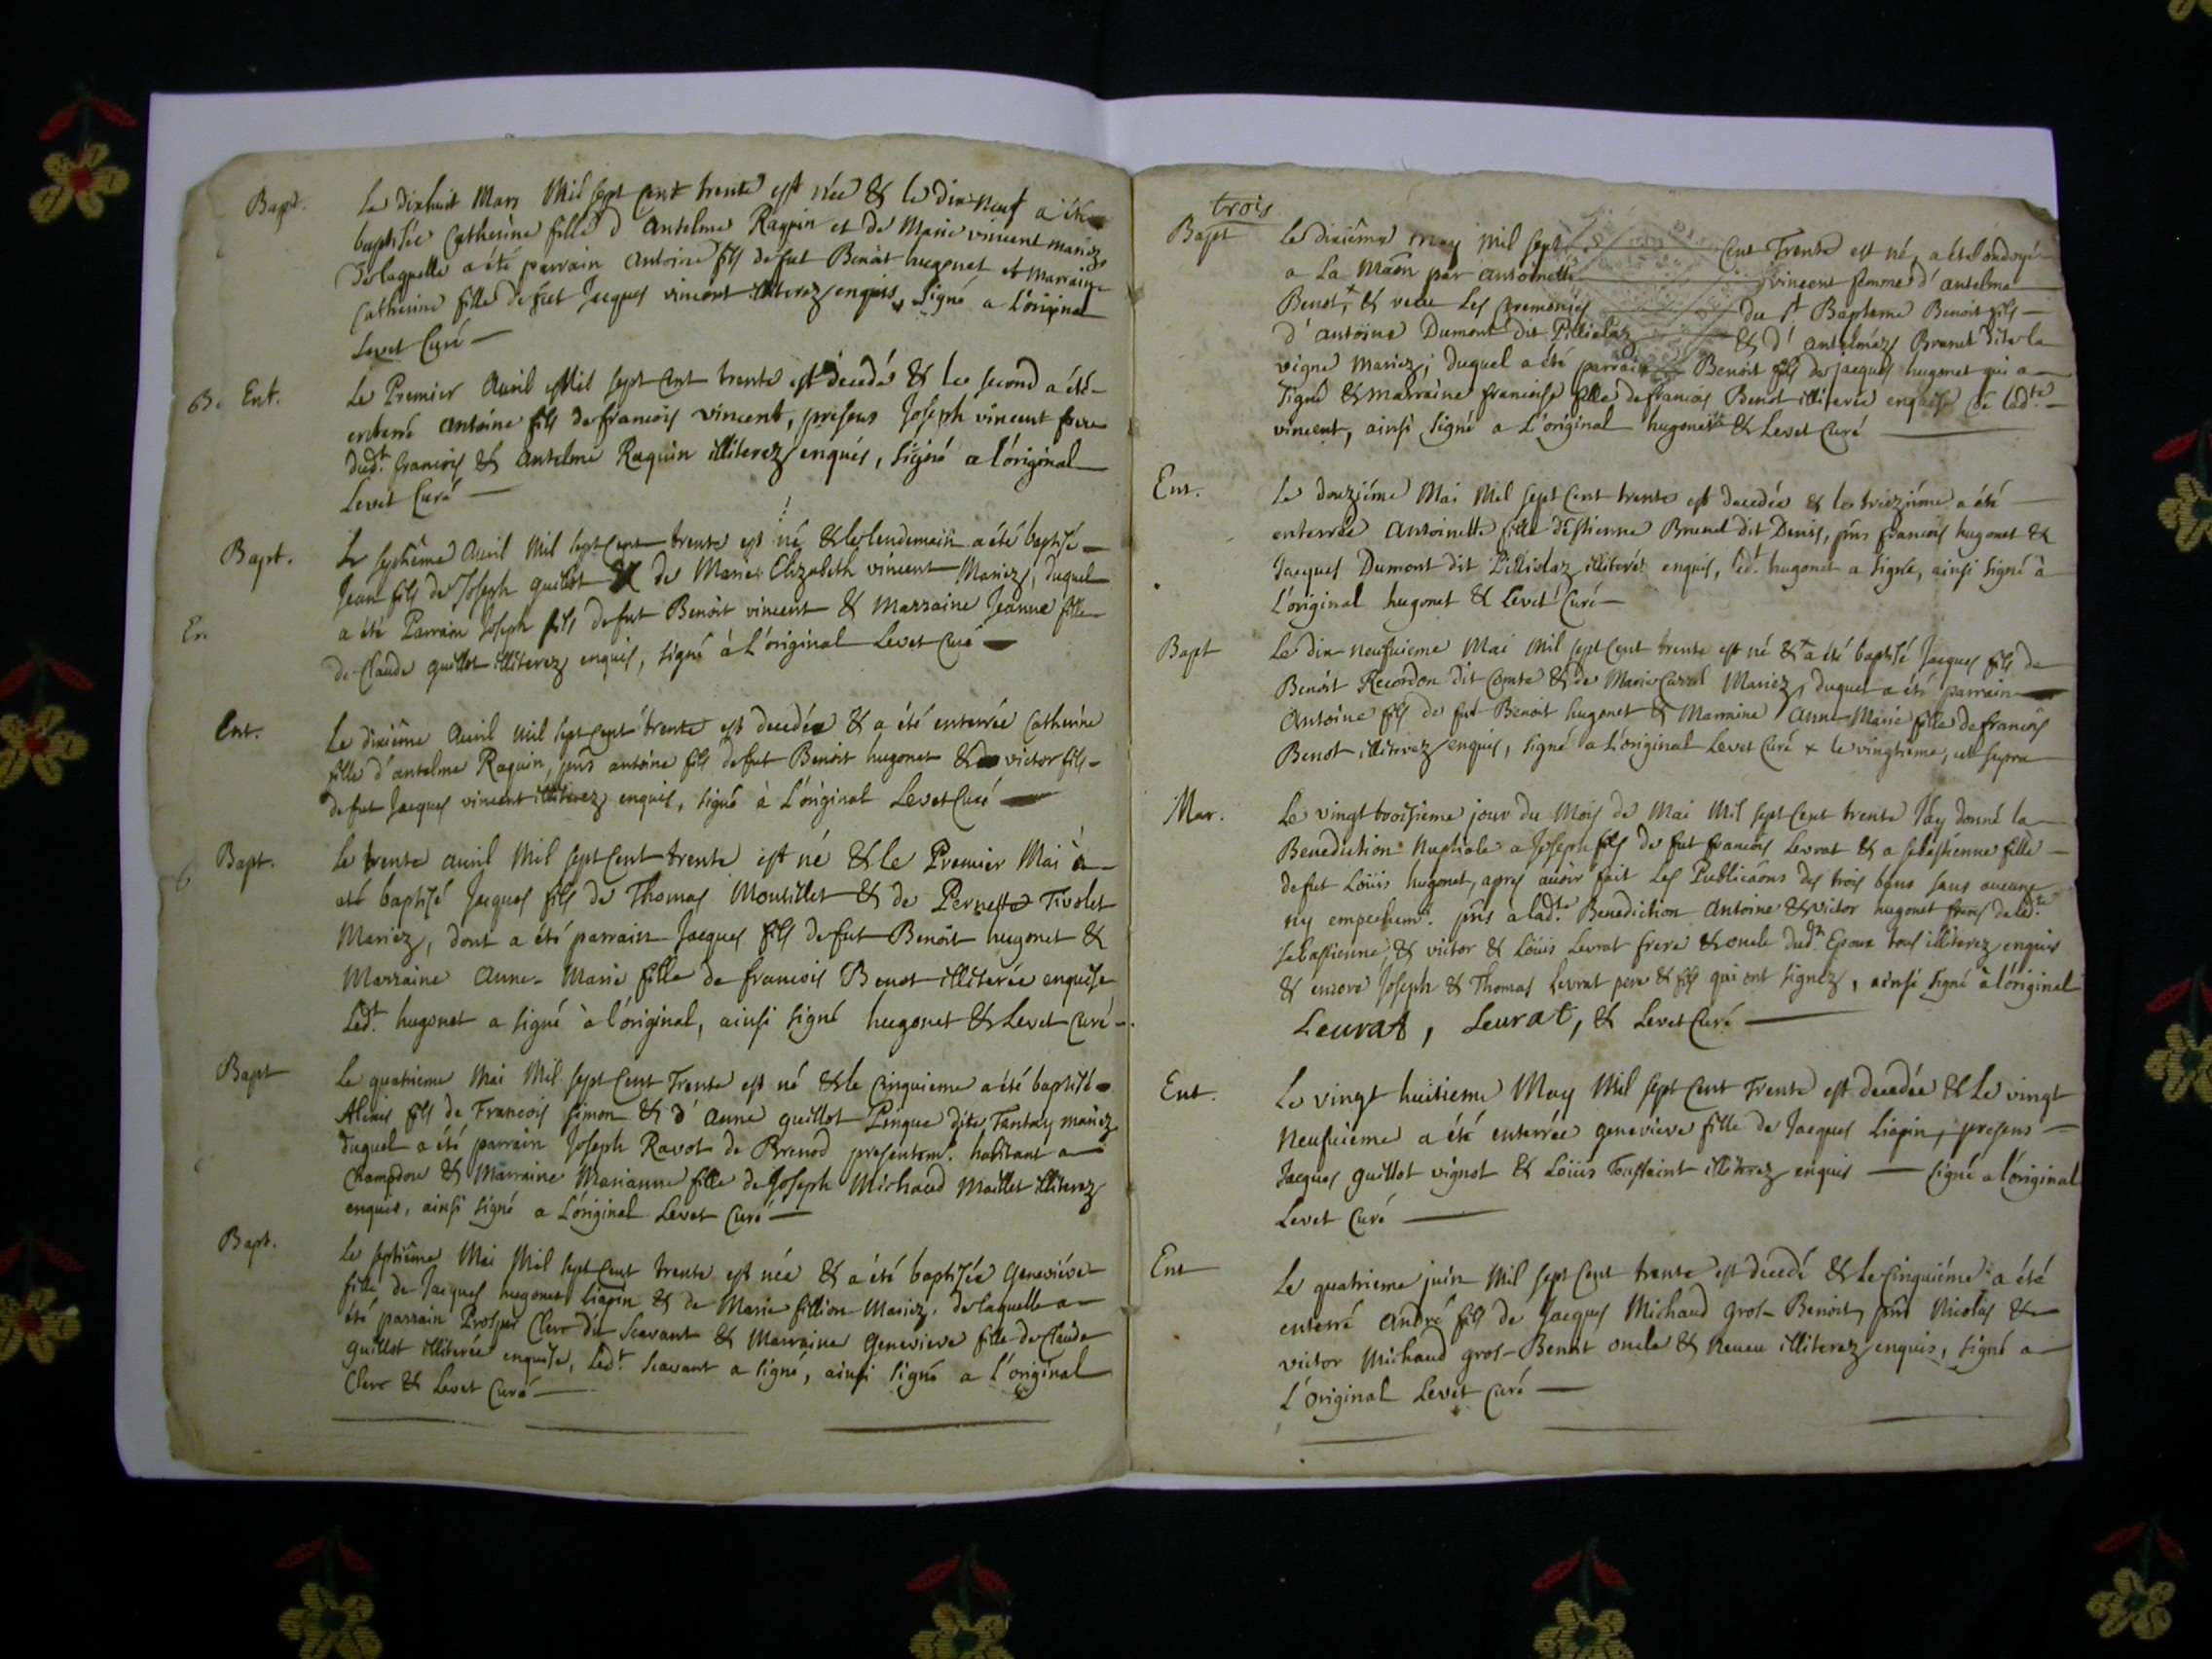 Bapt. Le dixhuit Mars Mil sept cent trente est née & le dix neuf a été
baptisée Catherine fille d'Antelme Raguin et de Marie vincent mariez
De laquelle a été parrain Antoine fils de fut Benoit hugonet et Marraine
Catherine fille de fut Jacques vincent illiterez enquis, signé a L'original
Levet Curé
B. Ent. Le Premier Avril Mil sept cent trente est decedé & le second a été
enterré Antoine fils de francois vincent, presens Joseph vincent frere
dud.t francois & Antelme Raguin illiterez enqués, signé a l'original
Levet Curé
Bapt. Le septiême Avril Mil sept cent trente est né & le lendemain a été baptisé
Jean fils de Joseph guillot & de Marie Elizabeth vincent Mariez, duquel
En a été Parrain Joseph fils de fut Benoit vincent & Marraine Jeanne fille
de Claude guillot illiterez enquis, signé à L'original Levet Curé
Ent. Le dixiême Avril Mil sept cent trente est decedée & a été enterrée Catherine
fille d'antelme Raguin, pñs antoine fils de fut Benoit hugonet & victor fils
de fut Jacques vincent illiterez enquis, signé à L'original Levet Curé
Bapt. Le trente avril Mil sept Cent trente est né & le Premier Mai à
été baptisé Jacques fils de Thomas Moutillet & de Pernette Tivolet
Mariez, dont a été parrain Jacques fils de fut Benoit hugonet &
Marraine Anne-Marie fille de francois Benot illiterée enquise
Led.t hugonet a signé à l'original, ainsi signé hugonet & Levet Curé
Bapt Le quatrieme Mai Mil sept Cent Trente est né & le Cinquieme a été baptisé
Alexis fils de Francois Simon & d'Anne guillot Pingue dite Tantay mariez
duquel a été parrain Joseph Ravot de Brenod presentem.t habitant a
Champdor & Marraine Marianne fille de Joseph Michaud Maillet illiterez
enquis, ainsi signé a L'original Levet Curé
Bapt. Le septiême Mai Mil sept Cent trente est née & a été baptisée Geneviéve
fille de Jacques hugonet Liapin & de Marie fillion Mariez, de laquelle a
été parrain Prosper Clerc dit Scavant & Marraine Genevieve fille de Claude
guillot illiterée enquise, Led.t Scavant a signé, ainsi signé a l'original
Clerc & Levet Curé
trois
Bapt Le dixiême may Mil sept Cent Trente est né, a été ondoyé
a La Maõn par Antoinette vincent femme d'antelme
Benot, & receu Les Ceremonies du S.t Baptesme Benoit fils
d'antoine Dumont dit Pillielaz & d'antelméz Brunet dite la
vigne Mariez; duquel a été parrain Benoit fils de jacques hugonet qui a
signé & marraine francoise fille de francois Benot illiterée enquise & lad.te
vincent, ainsi signé a L'original hugonet & Levet Curé
Ent. Le douziéme Mai Mil sept Cent trente est decedée & le treiziéme a été
enterrée Antoinette fille d'Estienne Brunet dit Denis, pñs francois hugonet &
Jacques Dumont dit Pillielaz illiterés enquis, led.t hugonet a signé, ainsi signé à
L'original hugonet & Levet Curé
Bapt Le dix neufvieme Mai Mil sept Cent trente est né & + a été baptisé Jacques fils de
Benoit Recordon dit Comte & de Marie Carrel Mariez, duquel a été parrain
Antoine fils de fut Benoit hugonet & Marraine Anne-Marie fille de francois
Benot illiterez enquis, signé a L'original Levet Curé + le vingtième, ut supra
Mar. Le vingt troisieme jour du Mois de Mai Mil sept Cent trente J'ay donné la
Benediction Nuptiale a Joseph fils de fut francois Levrat & a sebastienne fille
de fut Loüis hugonet, apres avoir fait Les Publicaõns des trois bans sans aucune
ny empechem.t pñs à lad.te Benediction Antoine & victor hugonet freres de lad.te
sebastienne, & victor & Loüis Levrat frere & oncle dud.t Epoux tous illiterez enquis
& encore Joseph & Thomas Levrat pere & fils qui ont signéz, ainsi signé à l'original
Leurat, Leurat, & Levet Curé
Ent. Le vingt huitieme May Mil sept Cent Trente est decedée & Le vingt
Neufvieme a été enterrée genevieve fille de Jacques Liapin, presens
Jacques guillot vignot & Loüis Toussaint illiterez enquis signé a l'original
Levet Curé
Ent Le quatrieme juin Mil sept Cent trente est decedé & Le Cinquiéme a été
enterré André fils de Jacques Michaud gros-Benoit, pñs Nicolas &
victor Michaud gros-Benoit oncle & Neveu illiterez enquis, signé a
L'original Levet Curé